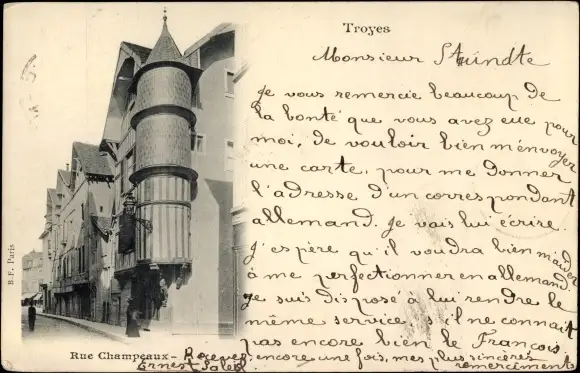 Troyes
Monsieur Stündte
Je vous remercie beaucoup de
la bonté que vous avez eue pour
moi, de vouloir bien m'envoyer
une carte, pour me donner
l'adresse d'un correspondant
allemand. Je vais lui écrire.
J'espère qu'il voudra bien m'aider
à me perfectionner en allemand.
Je suis disposé à lui rendre le
même service, s'il ne connait
pas encore bien le François.
Recevez, encore une fois, mes plus sincères
remerciements
Ernest
Rue Champeaux-
B. F. Paris